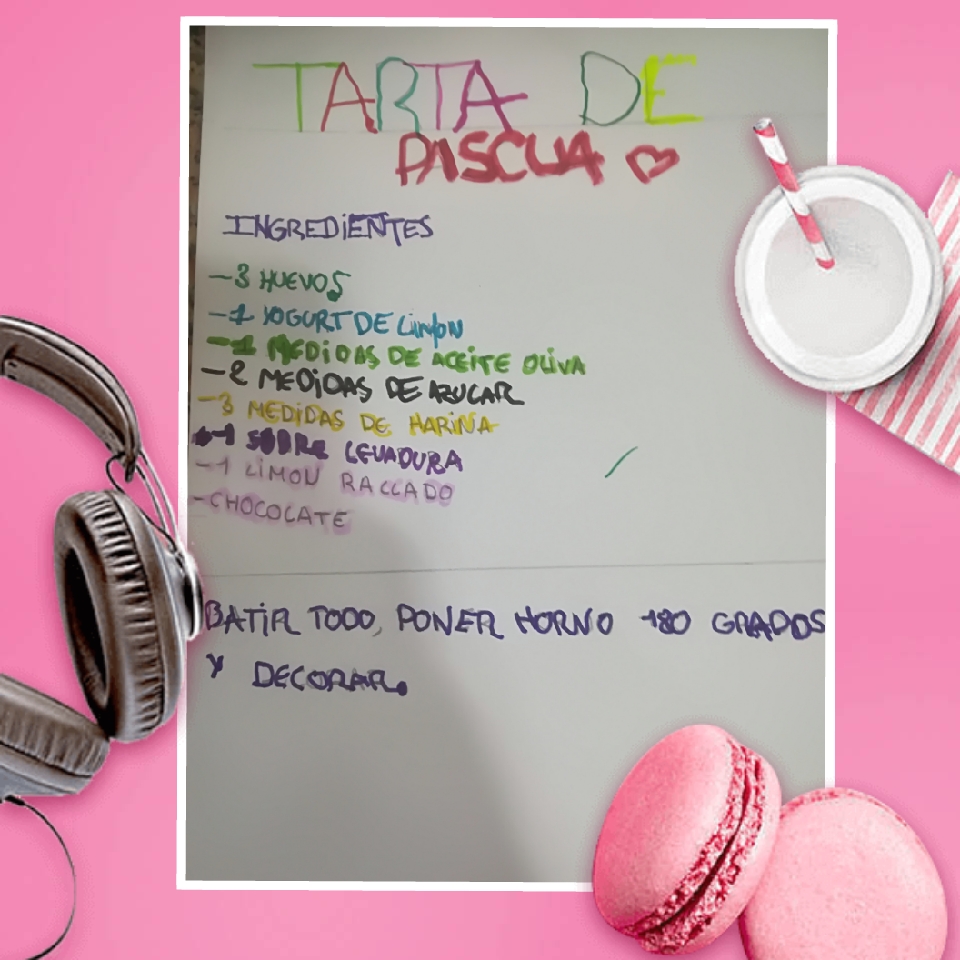 TARTA DE
PASCUA
INGREDIENTES
-3 HUEVOS
-1 YOGURT DE Limón
-1 MEDIDAS DE ACEITE OLIVA
-2 MEDIDAS DE AZUCAR
-3 MEDIDAS DE HARINA
-1 SOBRE LEVADURA
-1 LIMON RALLADO
-CHOCOLATE
BATIR TODO, PONER HORNO 180 GRADOS
Y DECORAR.